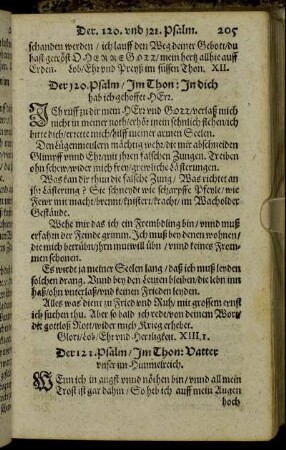 Der. 120. vnd 121. Psalm. 205
schanden werden / ich lauff den Weg deiner Gebott / du
hast getröst O HERRE GOTT / mein hertz allhie auff
Erden. Lob / Ehr vnd Preyß im süssen Thon. XII.
Der 120. Psalm / Im Thon: In dich
hab ich gehoffet HErr.
ICh ruff zu dir mein HErr vnd Gott / verlaß mich
nicht in meiner noth / erhör mein sehnlich flehen / ich
bitte dich / errette mich / hilff meiner armen Seelen.
Den lügenmeulern mächtig wehr / die mir abschneiden
Glimpff vnnd Ehr / mit jhren falschen Zungen. Treiben
ohn schew / wider mich frey / grewliche lästerungen.
Was kan dir thun die falsche Zung / Was richtet an
jhr Lästerung? Sie schneydt wie scharpffe Pfeyle / wie
Fewr mit macht / brennt / knistert / kracht / im Wacholder
Gestände.
Wehe mir das ich ein Frembdling bin / vnnd muß
erfahrn der Feinde grimm. Ich muß bey denen wohnen /
die mich betrübn / jhrn mutwill übn / vnnd keines From-
men schonen.
Es wirdt ja meiner Seelen lang / daß ich muß leyden
solchen drang. Vnnd bey den Leuten bleiben / die lebn inn
haß / ohn vnterlaß / vnd keinen Frieden leyden.
Alles was dient zu Fried vnd Ruh / mit grossem ernst
ich suchen thu. Aber so bald ich rede / von deinem Wort /
die gottloß Rott / wider mich Krieg erhebet.
Glori / Lob / Ehr vnd Herrligkeit. XIII.
Der 121. Psalm / Im Thon: Vatter
vnser im Himmelreich.
WEnn ich in angst vnnd nöthen bin / vnnd all mein
Trost ist gar dahin / So heb ich auff mein Augen
hoch